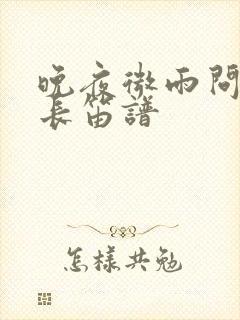 晚夜微雨問
長笛譜
怎樣共勉